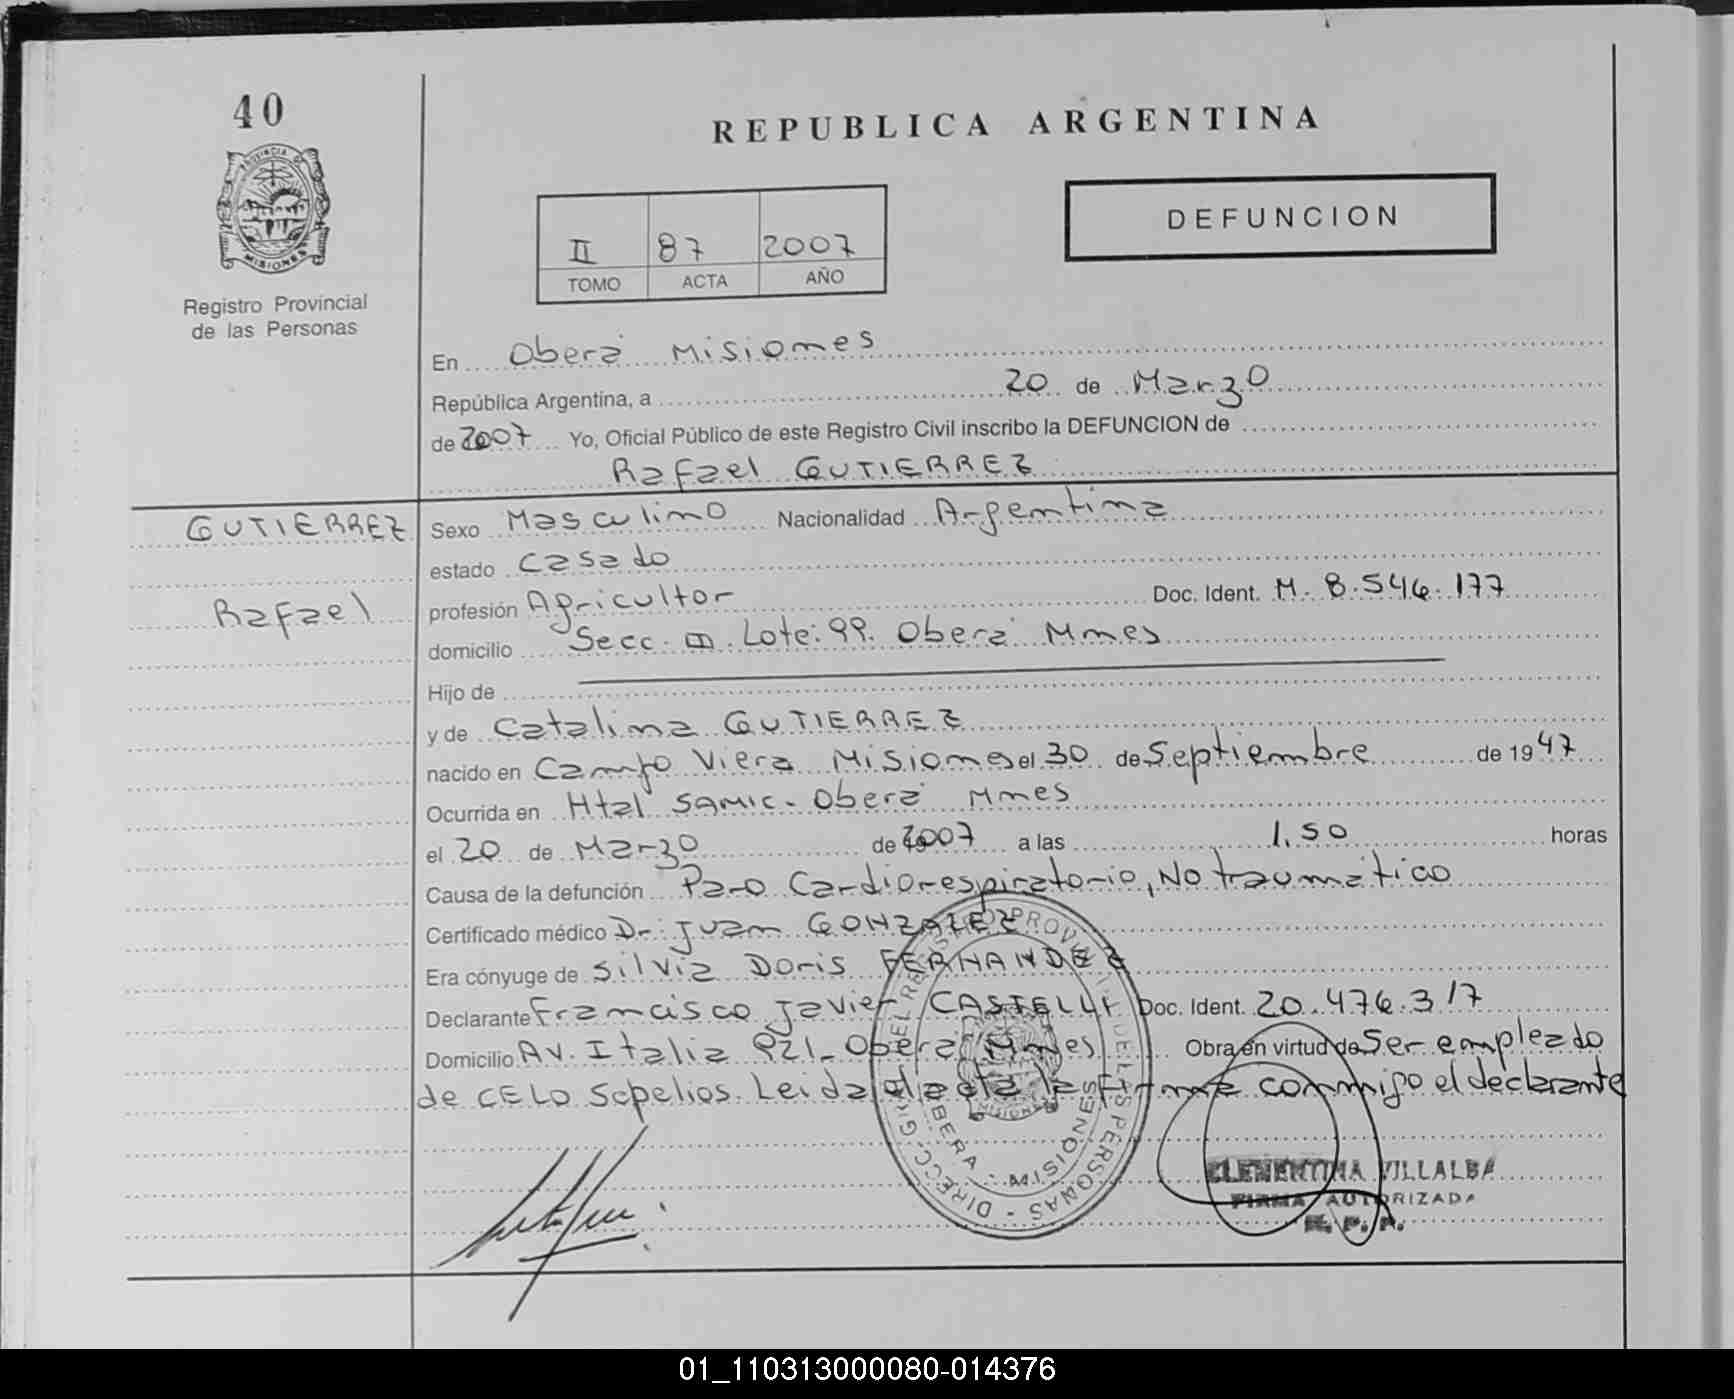 40
REPUBLICA ARGENTINA
PROVINCIA DE
MISIONES
DEFUNCION
II 87 2007
TOMO ACTA AÑO
Registro Provincial
de las Personas
En Oberá Misiones
República Argentina, a 20 de Marzo
de 2007 Yo, Oficial Público de este Registro Civil inscribo la DEFUNCION de
Rafael GUTIERREZ
GUTIERREZ
Rafael
Sexo Masculino Nacionalidad Argentina
estado Casado
profesión Agricultor Doc. Ident. M. 8.546.177
domicilio Secc. III. Lote: 99. Oberá Mnes
Hijo de
y de Catalina GUTIERREZ
nacido en Campo Viera Misiones el 30 de Septiembre de 1947
Ocurrida en Htal SAMIC. Oberá Mnes
el 20 de Marzo de 2007 a las 1,50 horas
Causa de la defunción Paro Cardiorespiratorio, No traumático
Certificado médico Dr. Juan GONZALEZ
Era cónyuge de Silvia Doris FERNANDEZ
Declarante Francisco Javier CASTELLI Doc. Ident. 20.476.317
Domicilio Av. Italia 921_ Oberá Mnes Obra en virtud de Ser empleado
de CELO Sepelios. Leida el acta la firma conmigo el declarante
DIRECC. GRAL. DEL REGISTRO PROVINCIAL DE LAS PERSONAS
OBERA - MISIONES
CLEMENTINA VILLALBA
FIRMA AUTORIZADA
R. P. P.
01_110313000080-014376